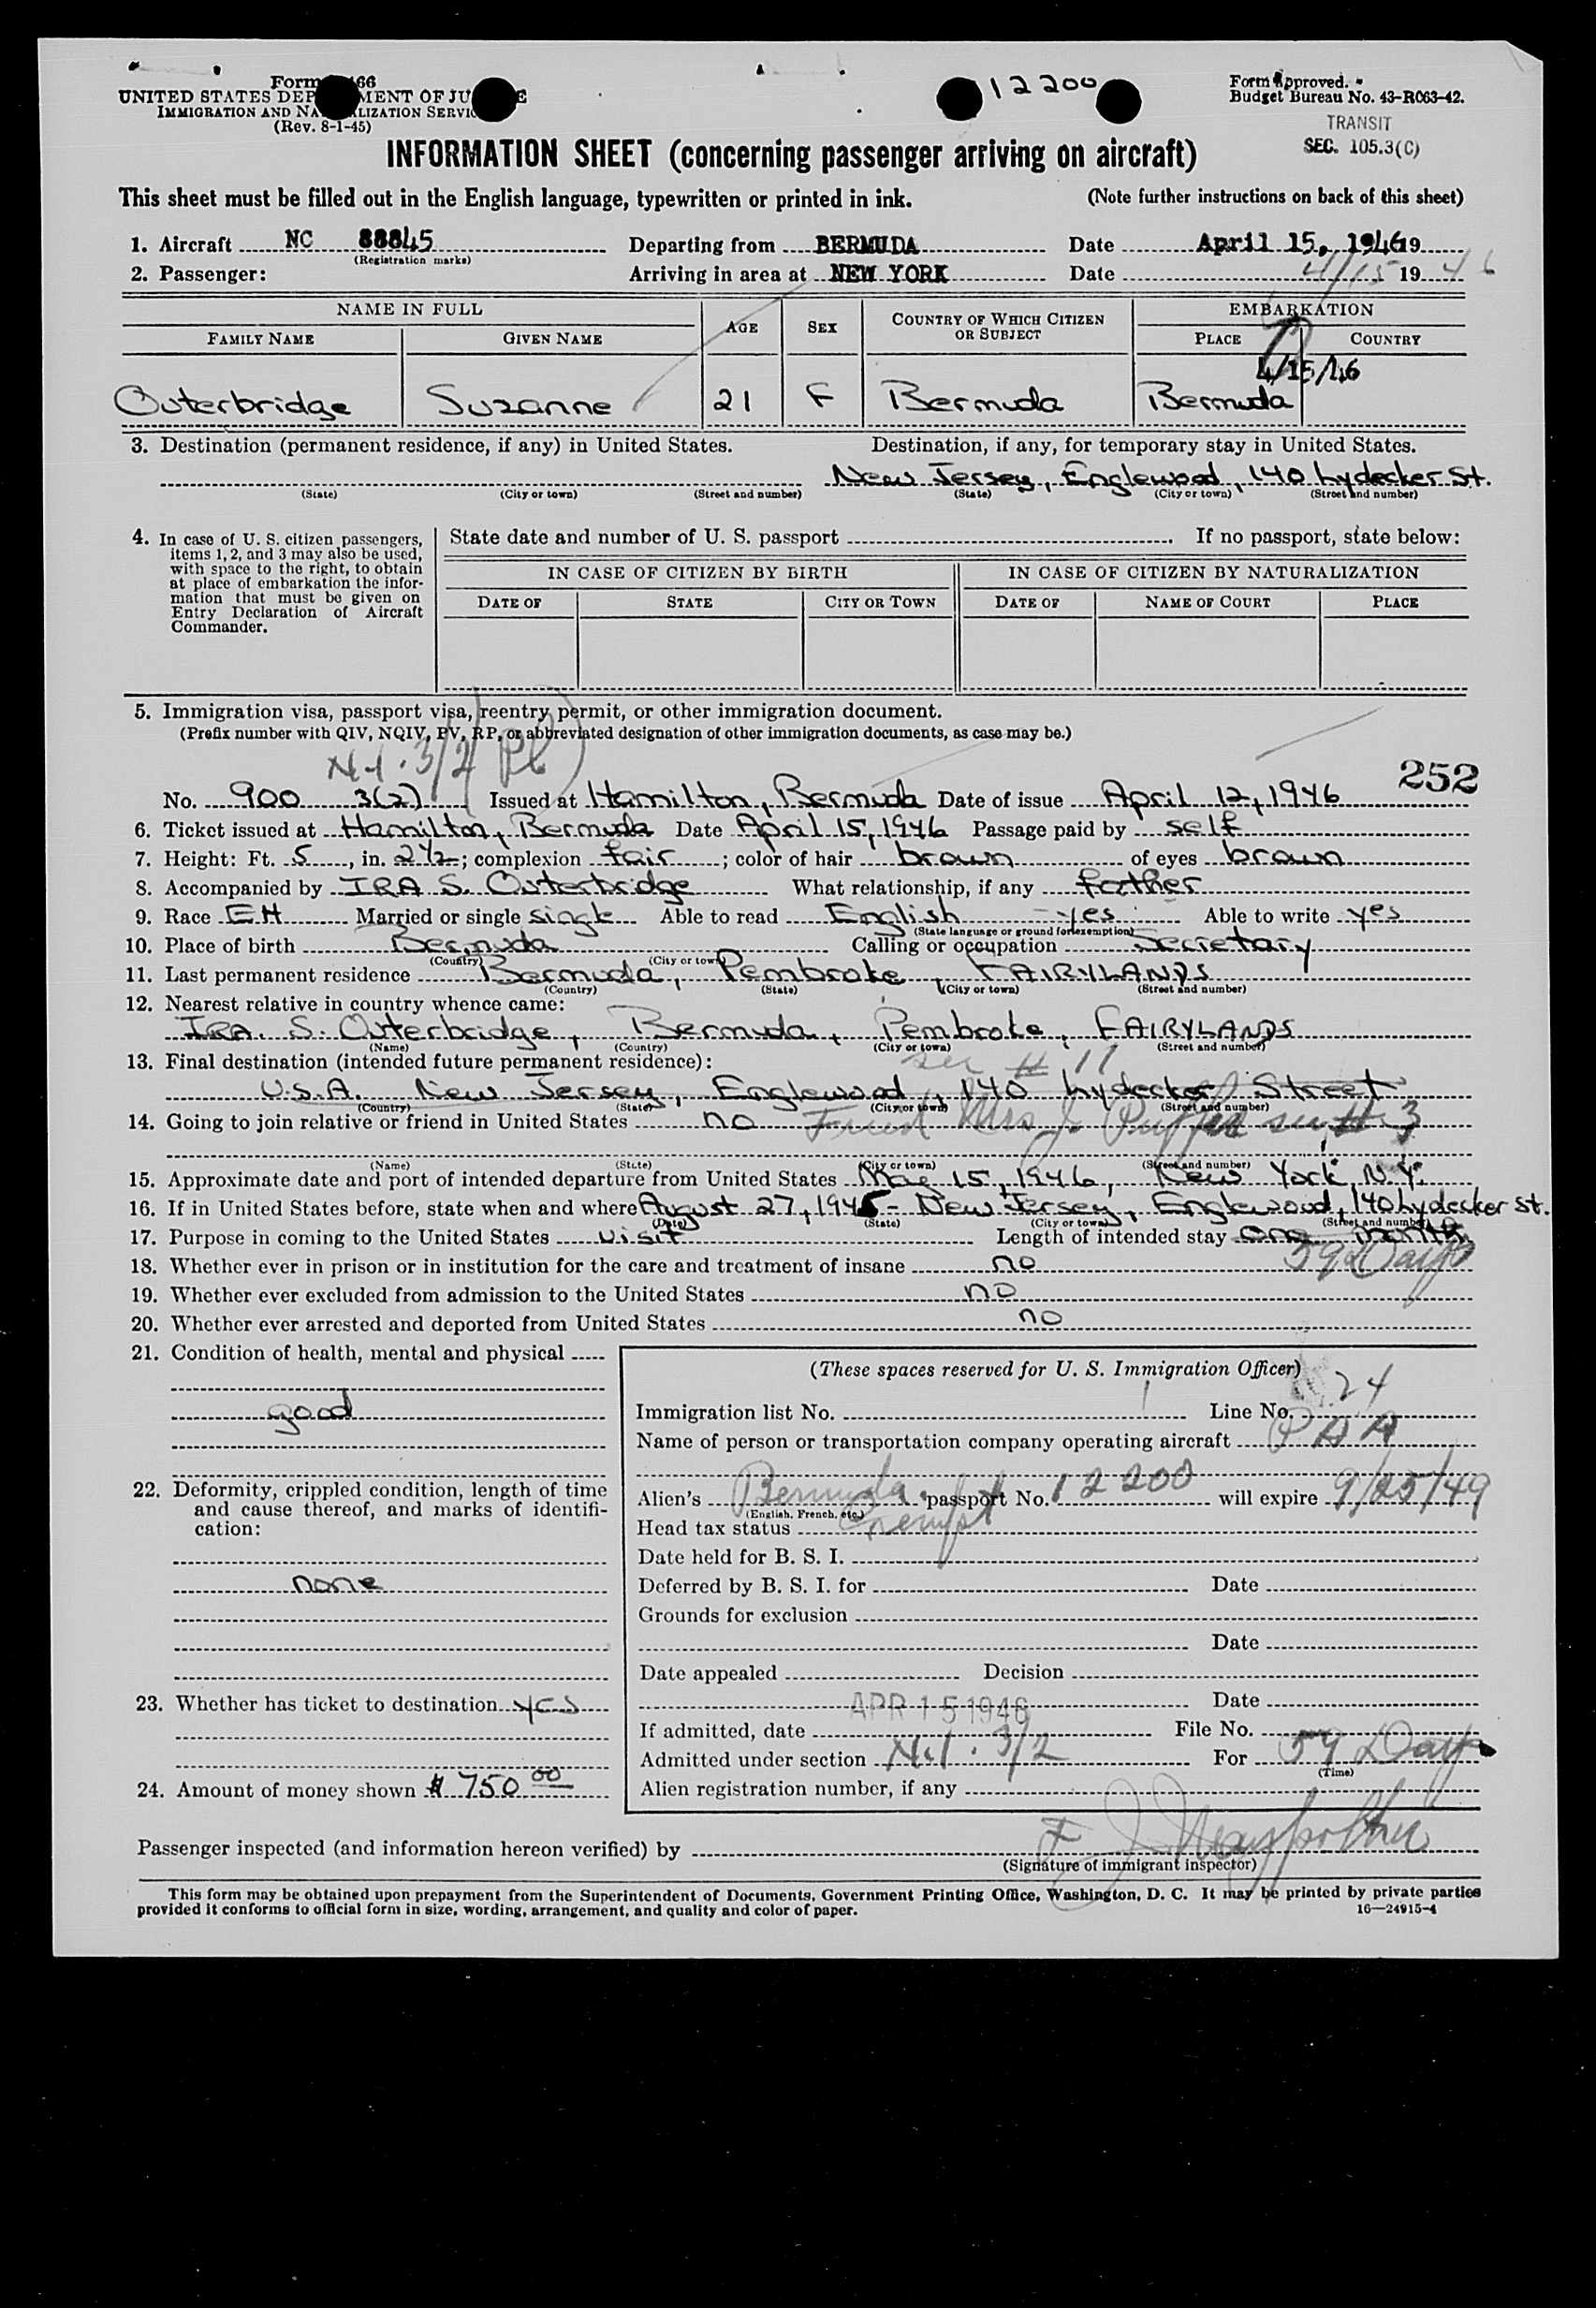 12200
Form 66
UNITED STATES DEP MENT OF JU E
IMMIGRATION AND NA LIZATION SERVIC
(Rev. 8-1-45)
Form Approved.
Budget Bureau No. 43-R063-42.
TRANSIT
SEC. 105.3(C)
INFORMATION SHEET (concerning passenger arriving on aircraft)
This sheet must be filled out in the English language, typewritten or printed in ink. (Note further instructions on back of this sheet)
1. Aircraft NC 88845 Departing from BERMUDA Date April 15, 1946 19
(Registration marks)
2. Passenger: Arriving in area at NEW YORK Date 4/15 1946
NAME IN FULL AGE SEX COUNTRY OF WHICH CITIZEN OR SUBJECT EMBARKATION
FAMILY NAME GIVEN NAME PLACE COUNTRY
4/15/46
Outerbridge Suzanne 21 F Bermuda Bermuda
3. Destination (permanent residence, if any) in United States. Destination, if any, for temporary stay in United States.
New Jersey, Englewood, 140 Lydecker St.
(State) (City or town) (Street and number) (State) (City or town) (Street and number)
4. In case of U. S. citizen passengers, items 1, 2, and 3 may also be used, with space to the right, to obtain at place of embarkation the information that must be given on Entry Declaration of Aircraft Commander.
State date and number of U. S. passport If no passport, state below:
IN CASE OF CITIZEN BY BIRTH IN CASE OF CITIZEN BY NATURALIZATION
DATE OF STATE CITY OR TOWN DATE OF NAME OF COURT PLACE
5. Immigration visa, passport visa, reentry permit, or other immigration document.
(Prefix number with QIV, NQIV, PV, RP, or abbreviated designation of other immigration documents, as case may be.)
3/2
252
No. 900 3(2) Issued at Hamilton, Bermuda Date of issue April 12, 1946
6. Ticket issued at Hamilton, Bermuda Date April 15, 1946 Passage paid by self
7. Height: Ft. 5, in. 2½; complexion fair; color of hair brown of eyes brown
8. Accompanied by IRA S. Outerbridge What relationship, if any father
9. Race EH Married or single single Able to read English - yes Able to write yes
(State language or ground for exemption)
10. Place of birth Bermuda Calling or occupation Secretary
(Country) (City or town)
11. Last permanent residence Bermuda, Pembroke, FAIRYLANDS
(Country) (State) (City or town) (Street and number)
12. Nearest relative in country whence came:
IRA. S. Outerbridge, Bermuda, Pembroke, FAIRYLANDS
(Name) (Country) (City or town) (Street and number)
13. Final destination (intended future permanent residence): see # 11
U.S.A. New Jersey, Englewood, 140 Lydecker Street
(Country) (State) (City or town) (Street and number)
14. Going to join relative or friend in United States no Friend Mrs J. see # 3
(Name) (State) (City or town) (Street and number)
15. Approximate date and port of intended departure from United States May 15, 1946, New York, N.Y.
16. If in United States before, state when and where August 27, 1945 - New Jersey, Englewood, 140 Lydecker St.
(Date) (State) (City or town) (Street and number)
17. Purpose in coming to the United States visit Length of intended stay one month
59 Days
18. Whether ever in prison or in institution for the care and treatment of insane no
19. Whether ever excluded from admission to the United States no
20. Whether ever arrested and deported from United States no
21. Condition of health, mental and physical
good
22. Deformity, crippled condition, length of time and cause thereof, and marks of identification:
none
23. Whether has ticket to destination yes
24. Amount of money shown $ 750 00
(These spaces reserved for U. S. Immigration Officer)
Immigration list No. Line No. 24
Name of person or transportation company operating aircraft PAA
Alien's Bermuda passport No. 12200 will expire 9/25/49
(English, French, etc.)
Head tax status Exempt
Date held for B. S. I.
Deferred by B. S. I. for Date
Grounds for exclusion
Date
Date appealed Decision
Date
APR 15 1946
If admitted, date File No.
Admitted under section 3/2 For 59 Days
(Time)
Alien registration number, if any
Passenger inspected (and information hereon verified) by
(Signature of immigrant inspector)
This form may be obtained upon prepayment from the Superintendent of Documents, Government Printing Office, Washington, D. C. It may be printed by private parties
provided it conforms to official form in size, wording, arrangement, and quality and color of paper. 16—24915-4